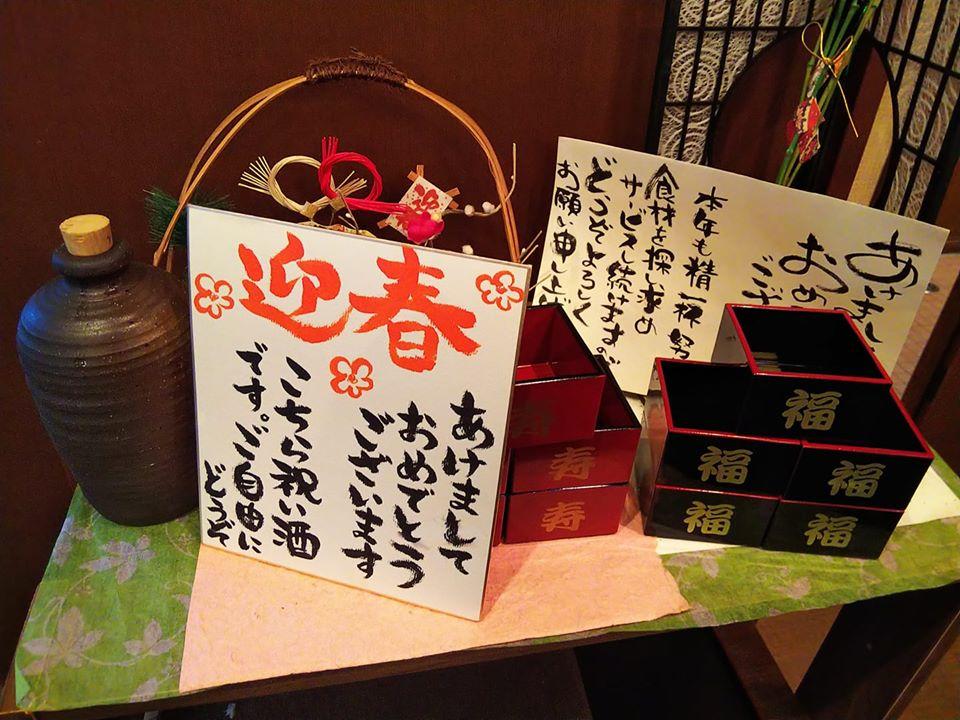 迎春
あけまして
おめでとう
ございます
こちら祝い酒
です。ご自由に
どうぞ
あけまし
おめ
ござ
本年も精一杯努
食材を探し求め
サービスし続けます。
どうぞよろしく
お願い申し上げ
寿
寿
寿
福
福
福
福
福
迎